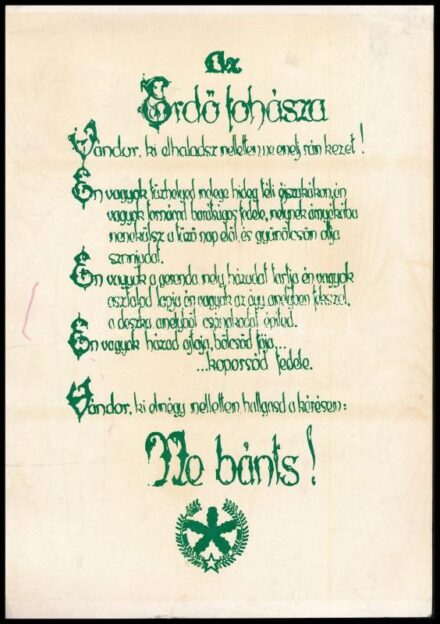 Az
Erdő fohásza
Vándor, ki elhaladsz mellettem ne emelj rám kezet!
Én vagyok tűzhelyed melege hideg téli éjszakákon, én
vagyok tornácod barátságos fedele, melynek árnyékába
menekülsz a tűző nap elől és gyümölcsöm oltja
szomjadat.
Én vagyok a gerenda mely házadat tartja én vagyok
asztalod lapja én vagyok az ágy amelyben fekszel,
a deszka amelyből csónakodat építed.
Én vagyok házad ajtaja, bölcsőd fája...
...koporsód fedele.
Vándor, ki elmégy mellettem hallgasd a kérésem:
Ne bánts!